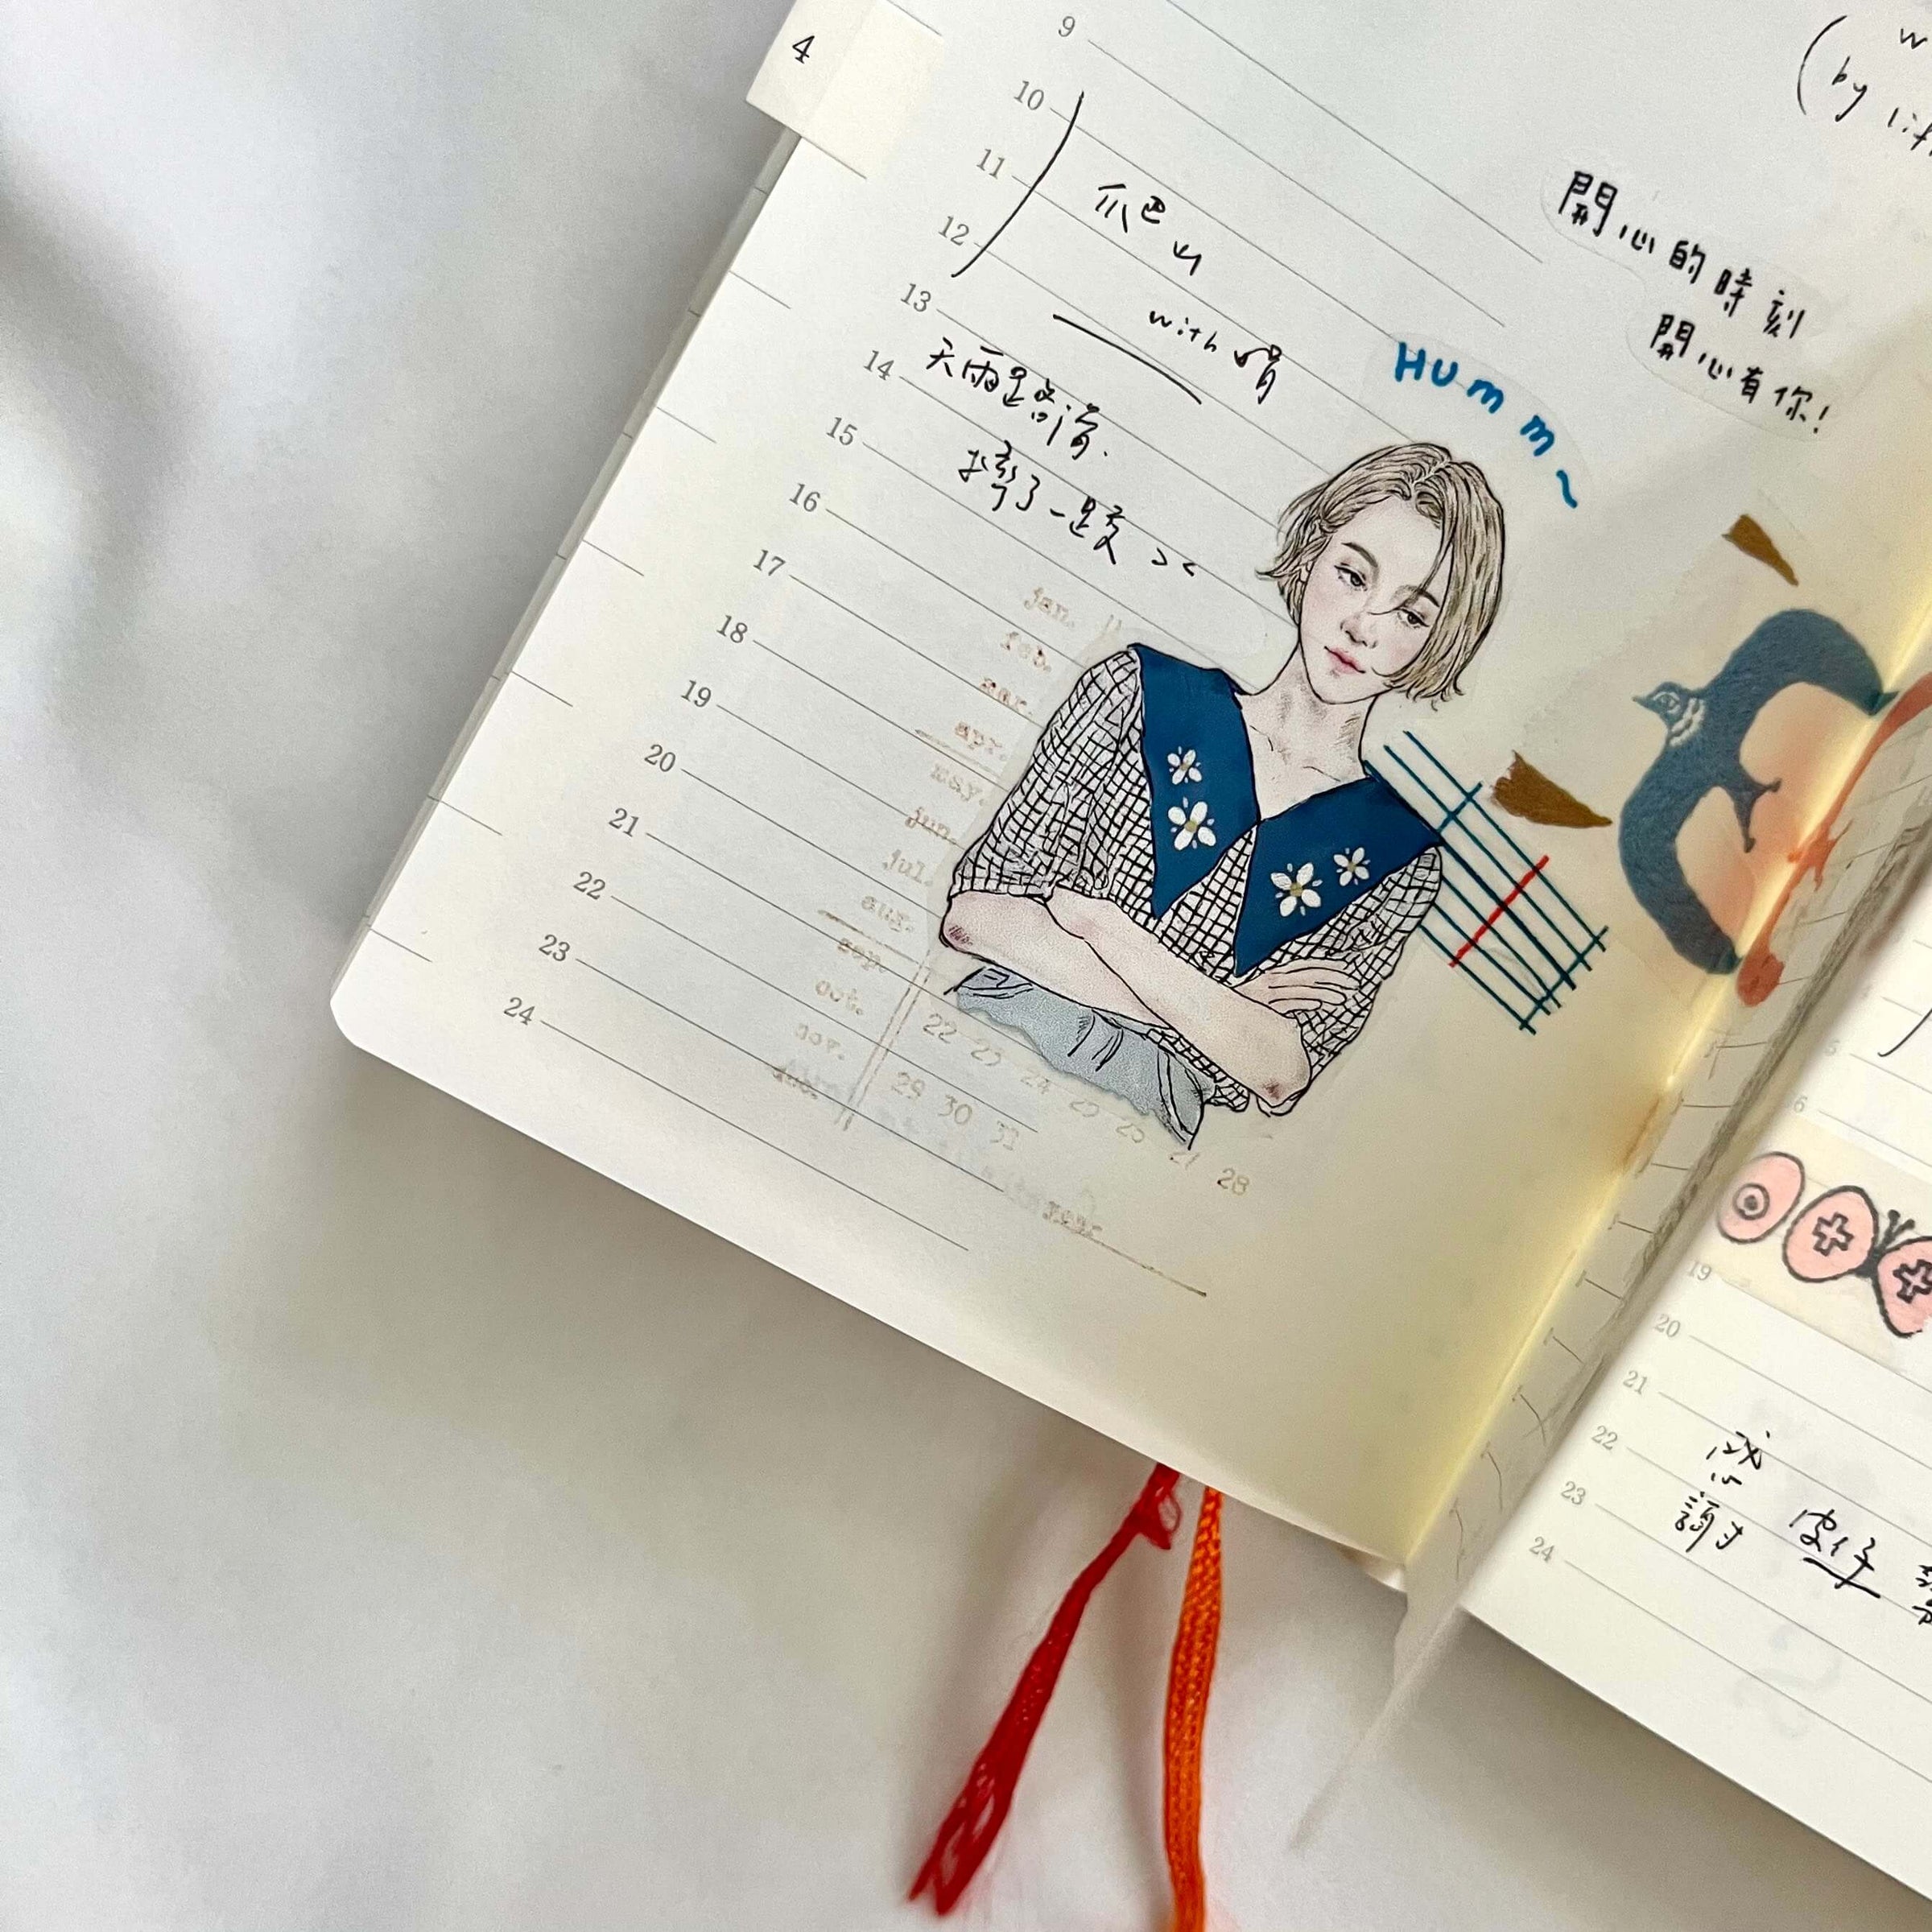 4
9
10
11
12
13
14
15
16
17
18
19
20
21
22
23
24
爬山
with 娟
天雨路滑.
摔了一跤 ><
Hummm~
(
by
開心的時刻
開心有你!
jan.
feb.
mar.
apr.
may.
jun.
jul.
aug.
sep.
oct.
nov.
22 23 24 25 26 27 28
29 30 31
year
19
20
21
22
23
24
感
謝 皮仔